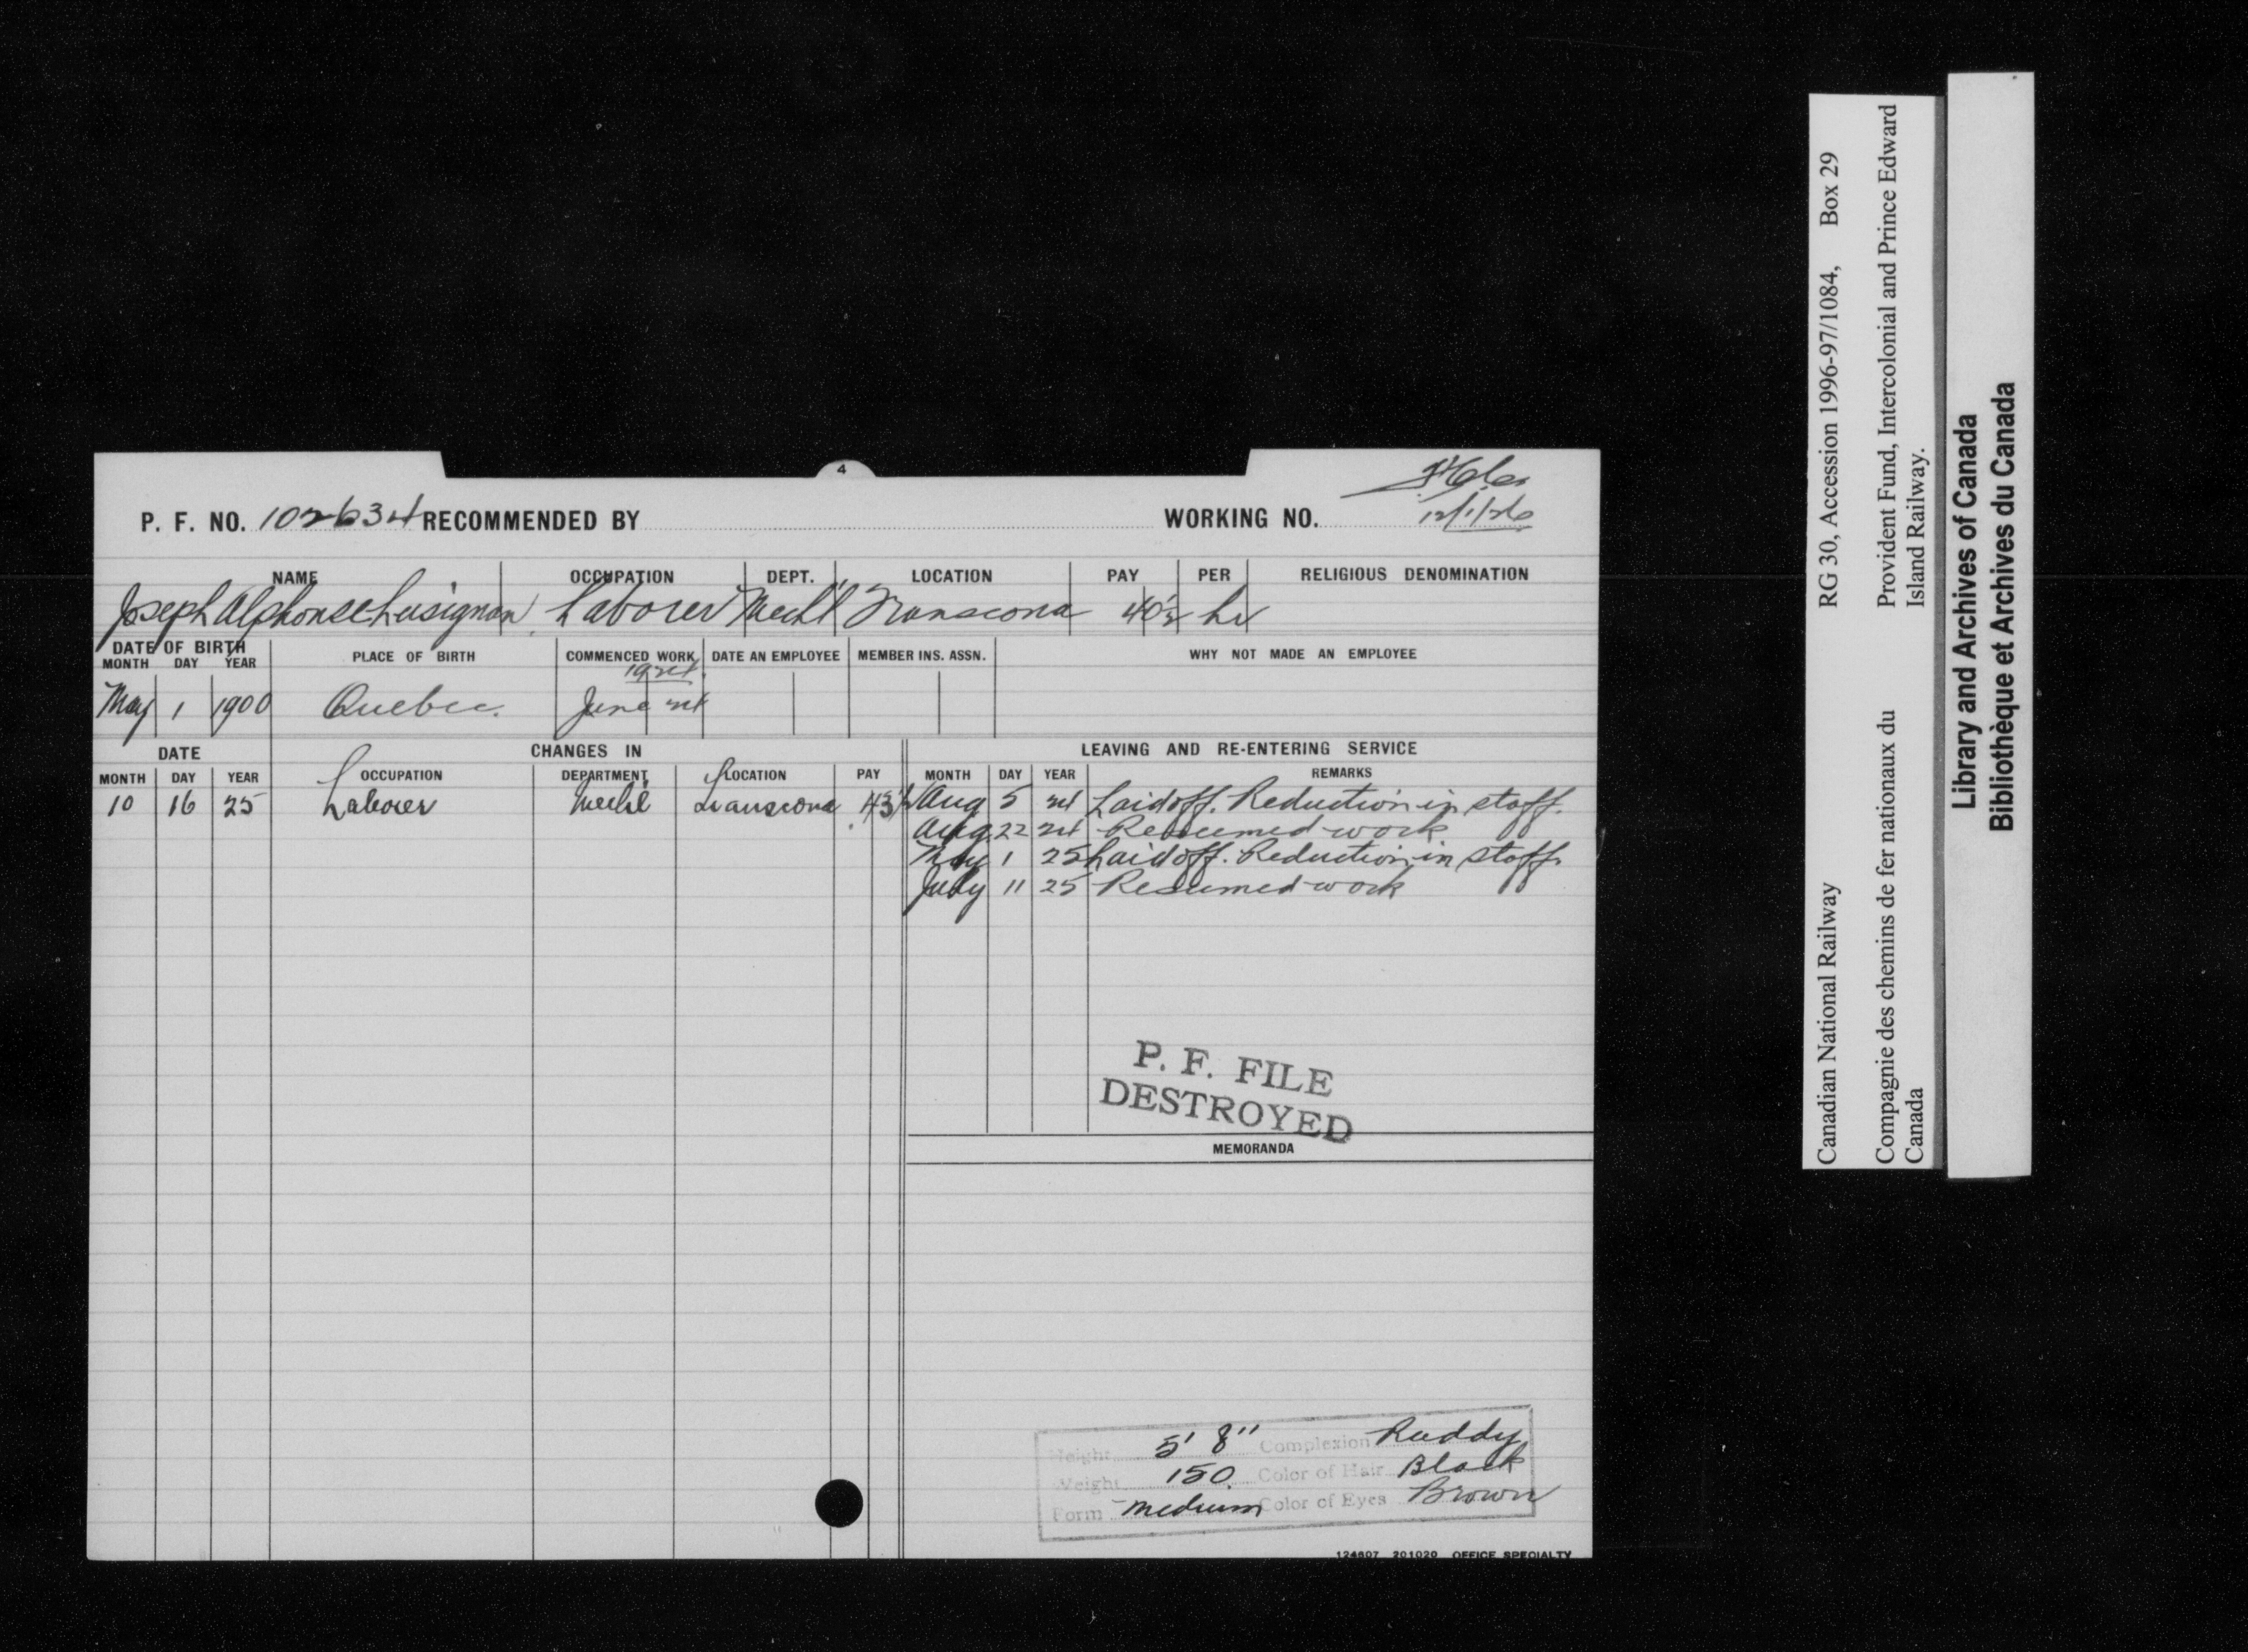 4
P. F. NO. 102634 RECOMMENDED BY WORKING NO. 12/1/26
NAME OCCUPATION DEPT. LOCATION PAY PER RELIGIOUS DENOMINATION
Joseph Alphonse Lusignan Laborer Mech'l Transcona 40½ hr
DATE OF BIRTH
MONTH DAY YEAR PLACE OF BIRTH COMMENCED WORK DATE AN EMPLOYEE MEMBER INS. ASSN. WHY NOT MADE AN EMPLOYEE
1924.
May 1 1900 Quebec. June 24
DATE CHANGES IN LEAVING AND RE-ENTERING SERVICE
MONTH DAY YEAR OCCUPATION DEPARTMENT LOCATION PAY MONTH DAY YEAR REMARKS
10 16 25 Laborer Mech'l Transcona .43½ Aug 5 24 Laid off. Reduction in staff.
Aug. 22 24 Resumed work
May 1 25 Laid off. Reduction in staff.
July 11 25 Resumed work
P. F. FILE
DESTROYED
MEMORANDA
Height 5' 8" Complexion Ruddy
Weight 150 Color of Hair Black
Form Medium Color of Eyes Brown
124607 201020 OFFICE SPECIALTY
Canadian National Railway RG 30, Accession 1996-97/1084, Box 29
Compagnie des chemins de fer nationaux du Provident Fund, Intercolonial and Prince Edward
Canada Island Railway.
Library and Archives of Canada
Bibliothèque et Archives du Canada